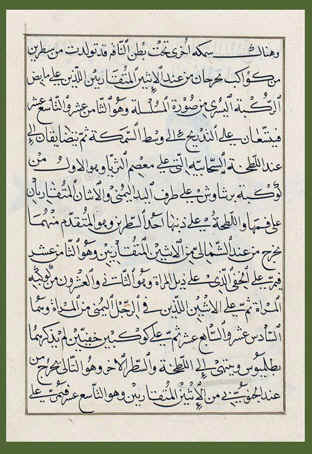 وهنالك سمكة اخرى تحت بطن الناقة قد تولدت من سطرين
من كواكب تخرجان من عند الاثنين المتقاربين اللذين على مابض
الركبة اليسرى من صورة المسلسلة وهو الثامن عشر والتاسع عشر
على التعريج الى وسط السمكة ثم يتضايقان الى
عند اللطخة السحابية التى على معصم الثريا وهو الاول من
كوكبة برشاوش على طرف اليد اليمنى والاثنان المتقاربان
على فمها واللطخة على ذنبها احد السطرين وهو المتقدم منهما
يخرج من عند الشمالى من الاثنين المتقاربين وهو الثامن عشر
فيمر على الخفى الذى على ذيل المراة وهو الثانى والعشرون من كوكبة
المراة ثم على الاثنين اللذين فى الرجل اليمنى من المراة وهما
السادس عشر والسابع عشر ثم على كوكبين خفيين لم يذكرهما
بطلميوس وينتهى الى اللطخة والسطر الاخر وهو التالى يخرج من
عند الجنوبى من الاثنين المتقاربين وهو التاسع عشر فيمر على